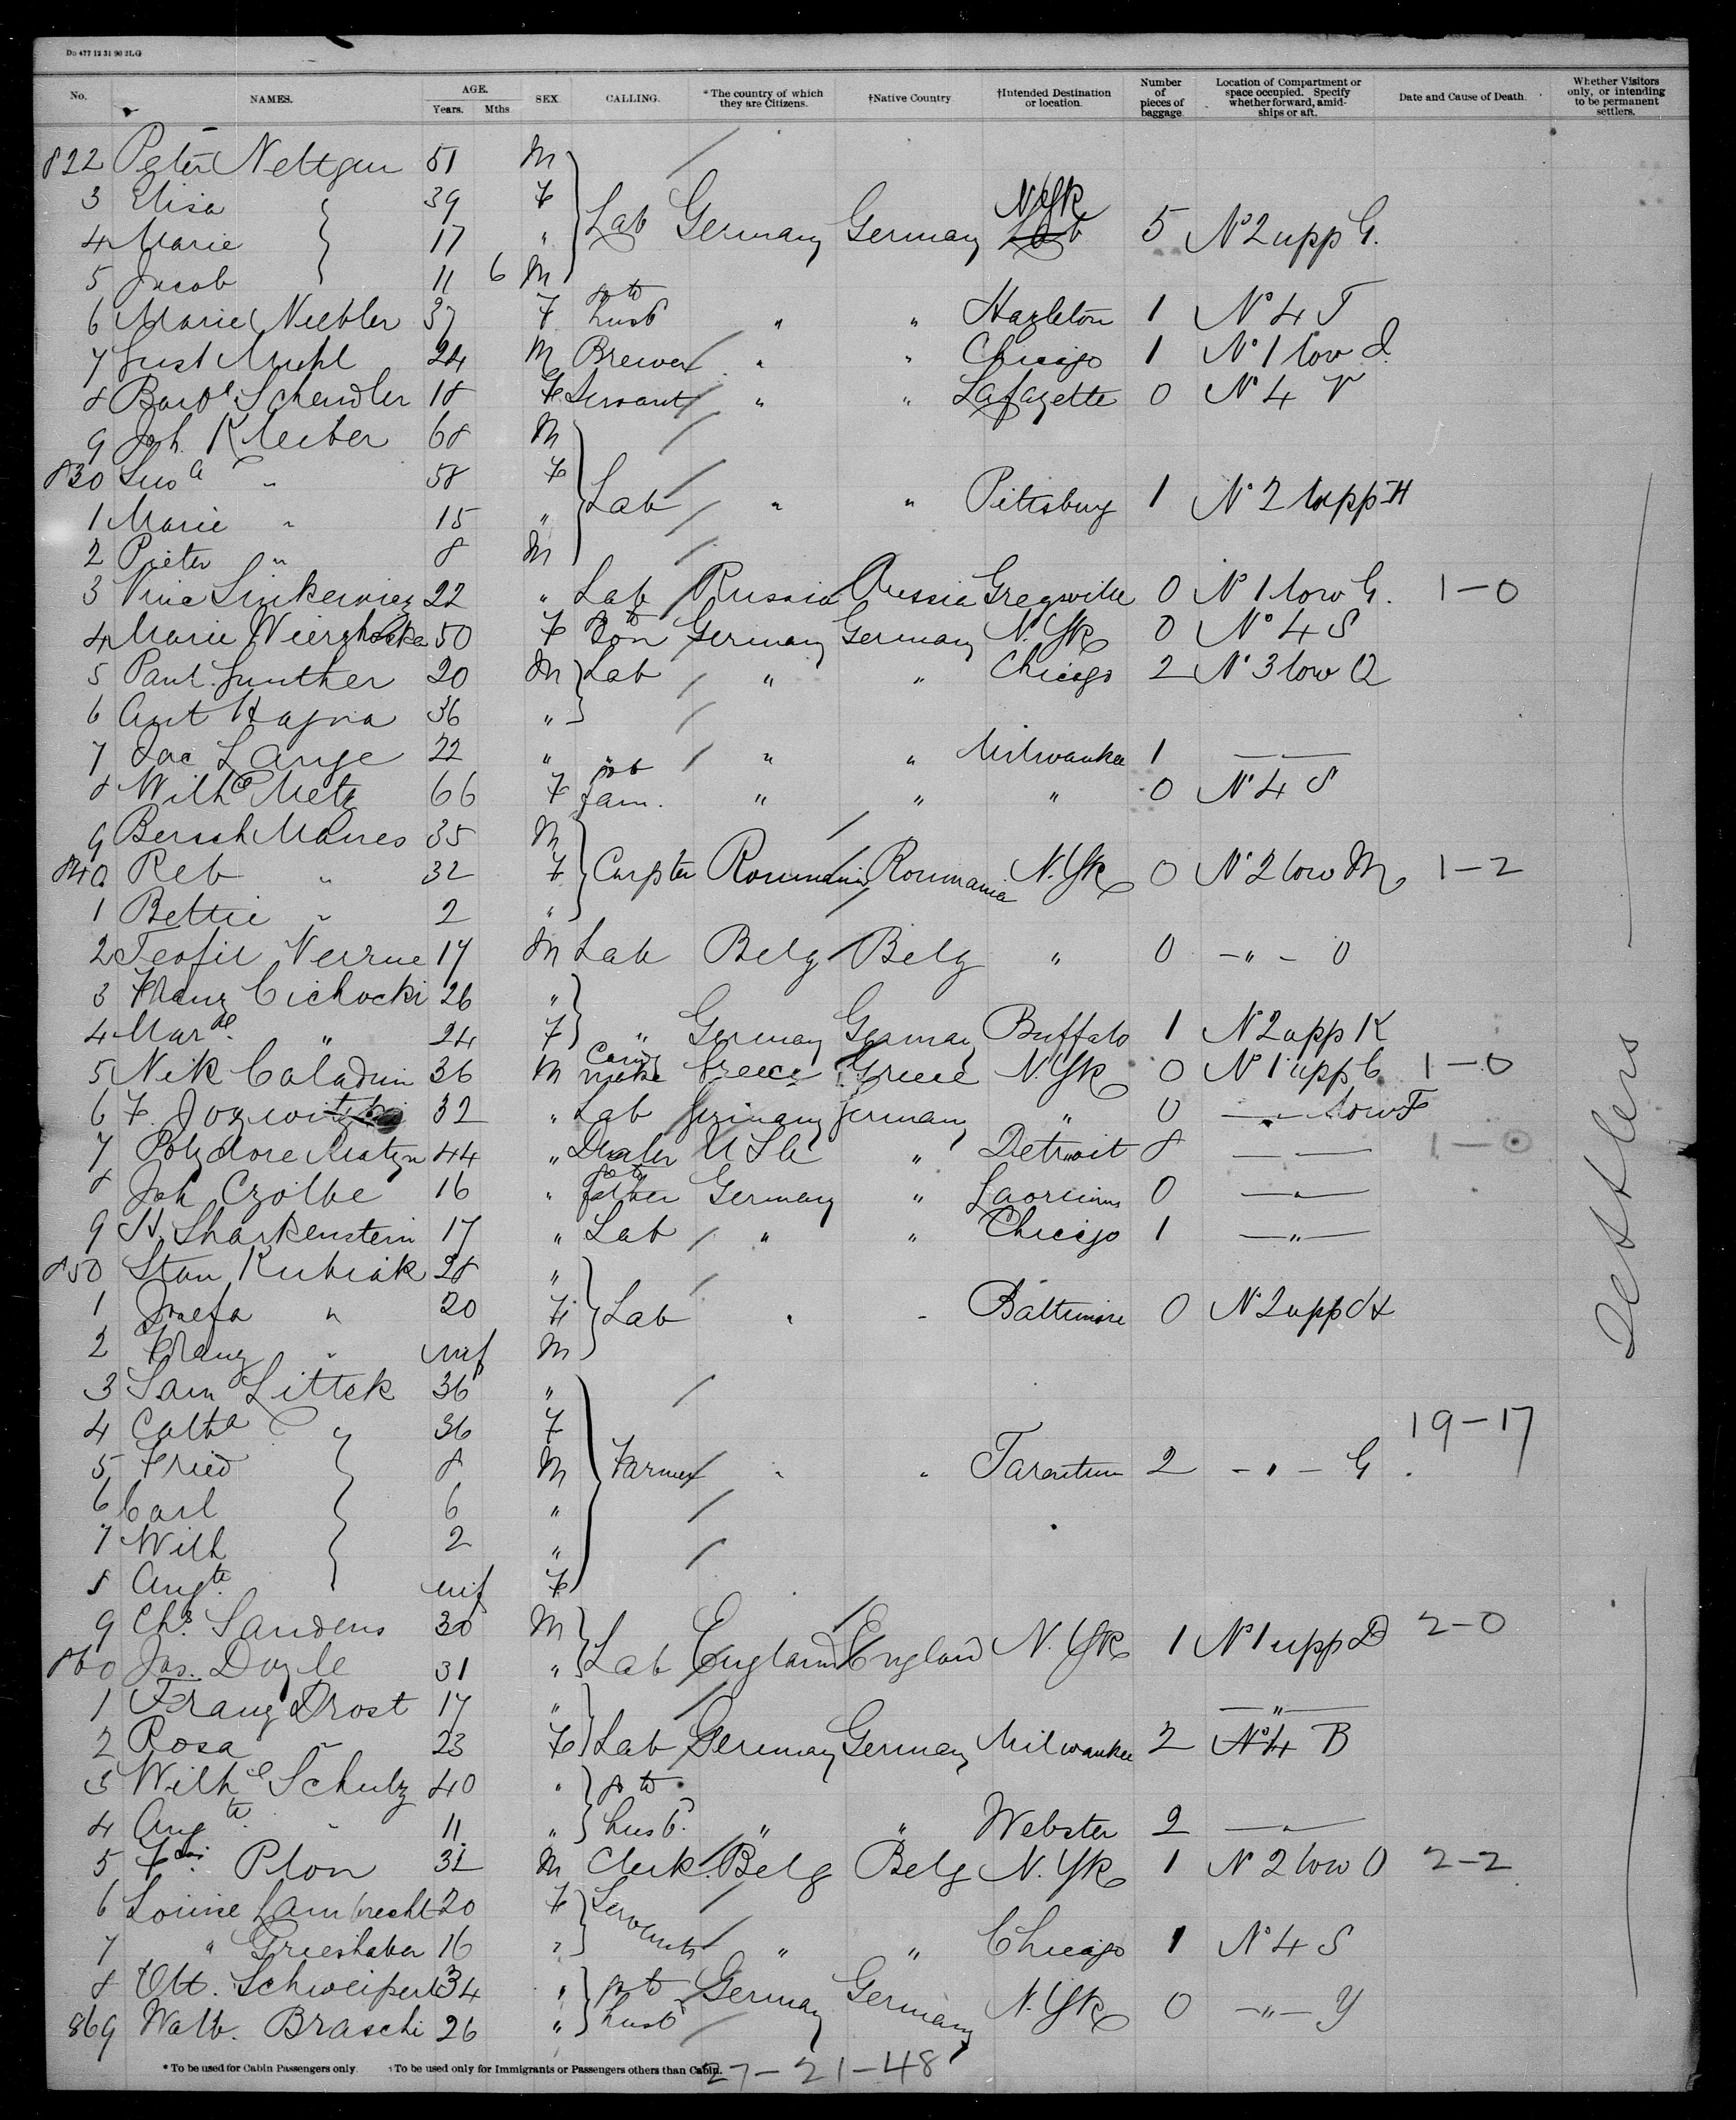 Do 477 12 31 90 2LG
No. NAMES. AGE. Years. Mths. SEX. CALLING. *The country of which they are Citizens. †Native Country †Intended Destination or location. Number of pieces of baggage Location of Compartment or space occupied. Specify whether forward, amidships or aft. Date and Cause of Death. Whether Visitors only, or intending to be permanent settlers.
822 Peter Neltgen 51 M
3 Elisa 39 F Lab Germany Germany N.Yk 5 No 2 upp G.
4 Marie 17 "
5 Jacob 11 6 M
6 Marie Niebler 37 F to husb " " Hazleton 1 No 4 T
7 Gust Muhl 24 M Brewer " " Chicago 1 No 1 low J.
8 Schendler 18 F Servant " " Lafayette 0 No 4 V
9 Joh. Kleiber 68 M
830 Susa " 58 F Lab " " Pittsburg 1 No 2 upp H
1 Marie " 15 "
2 Pieter " 8 M
3 Sinkewicz 22 " Lab Russia Russia 0 No 1 low G. 1-0
4 Marie 50 F to son Germany Germany N.Yk 0 No 4 S
5 Paul Gunther 20 M Lab " " Chicago 2 No 3 low Q
6 Ant Hajna 36 "
7 Jac Lange 22 " " " Milwaukee 1 — —
8 Wilhe Metz 66 F fam. " " " 0 No 4 S
9 Bersch Manes 35 M
840 Reb " 32 F Carpter Roumania Roumania N.Yk 0 No 2 low M 1-2
1 Bettie " 2 "
2 Teofil Verrue 17 M Lab Belg Belg " 0 -"- O
3 Franz Cichocki 26 "
4 Marde " 24 F " Germany Germany Buffalo 1 No 2 upp K
5 Nik Caladim 36 M Greece Greece N.Yk 0 No 1 upp C 1-0
6 F. 32 " Lab Germany Germany " 0 —"— low F
7 Polydore 44 " Dealer USA " Detroit 8 — — 1-0
8 Joh Czolbe 16 " to father Germany " 0 —"—
9 H. Sharkenstein 17 " Lab " " Chicago 1 —"—
850 Stan Kubiak 28 "
1 Josefa " 20 F Lab " " Baltimore 0 No 2 upp H
2 Franz " inf M
3 Sam Littek 36 "
4 Catha " 36 F 19-17
5 Fried 8 M Farmer " " Tarentum 2 -"- G
6 Carl 6 "
7 Wilh 2 "
8 Augte. inf F
9 Chs. Sandens 30 M
860 Jas. Doyle 31 " Lab England England N.Yk 1 No 1 upp D 2-0
1 Franz Drost 17 " —"—
2 Rosa " 23 F Lab Germany Germany Milwaukee 2 No 4 B
3 Wilhe Schulz 40 " to
4 Augte. " 11 " husb. " " Webster 2 —"—
5 Plon 31 M Clerk Belg Belg N.Yk 1 No 2 low O 2-2
6 Louise Lambrecht 20 F Servants
7 " Grieshaber 16 " " " Chicago 1 No 4 S
8 Ott. Schweipert 34 " to Germany Germany N.Yk 0 -"- Y
869 Walb. Braschi 26 " husb
Settlers
* To be used for Cabin Passengers only. †To be used only for Immigrants or Passengers others than Cabin.
27-21-48